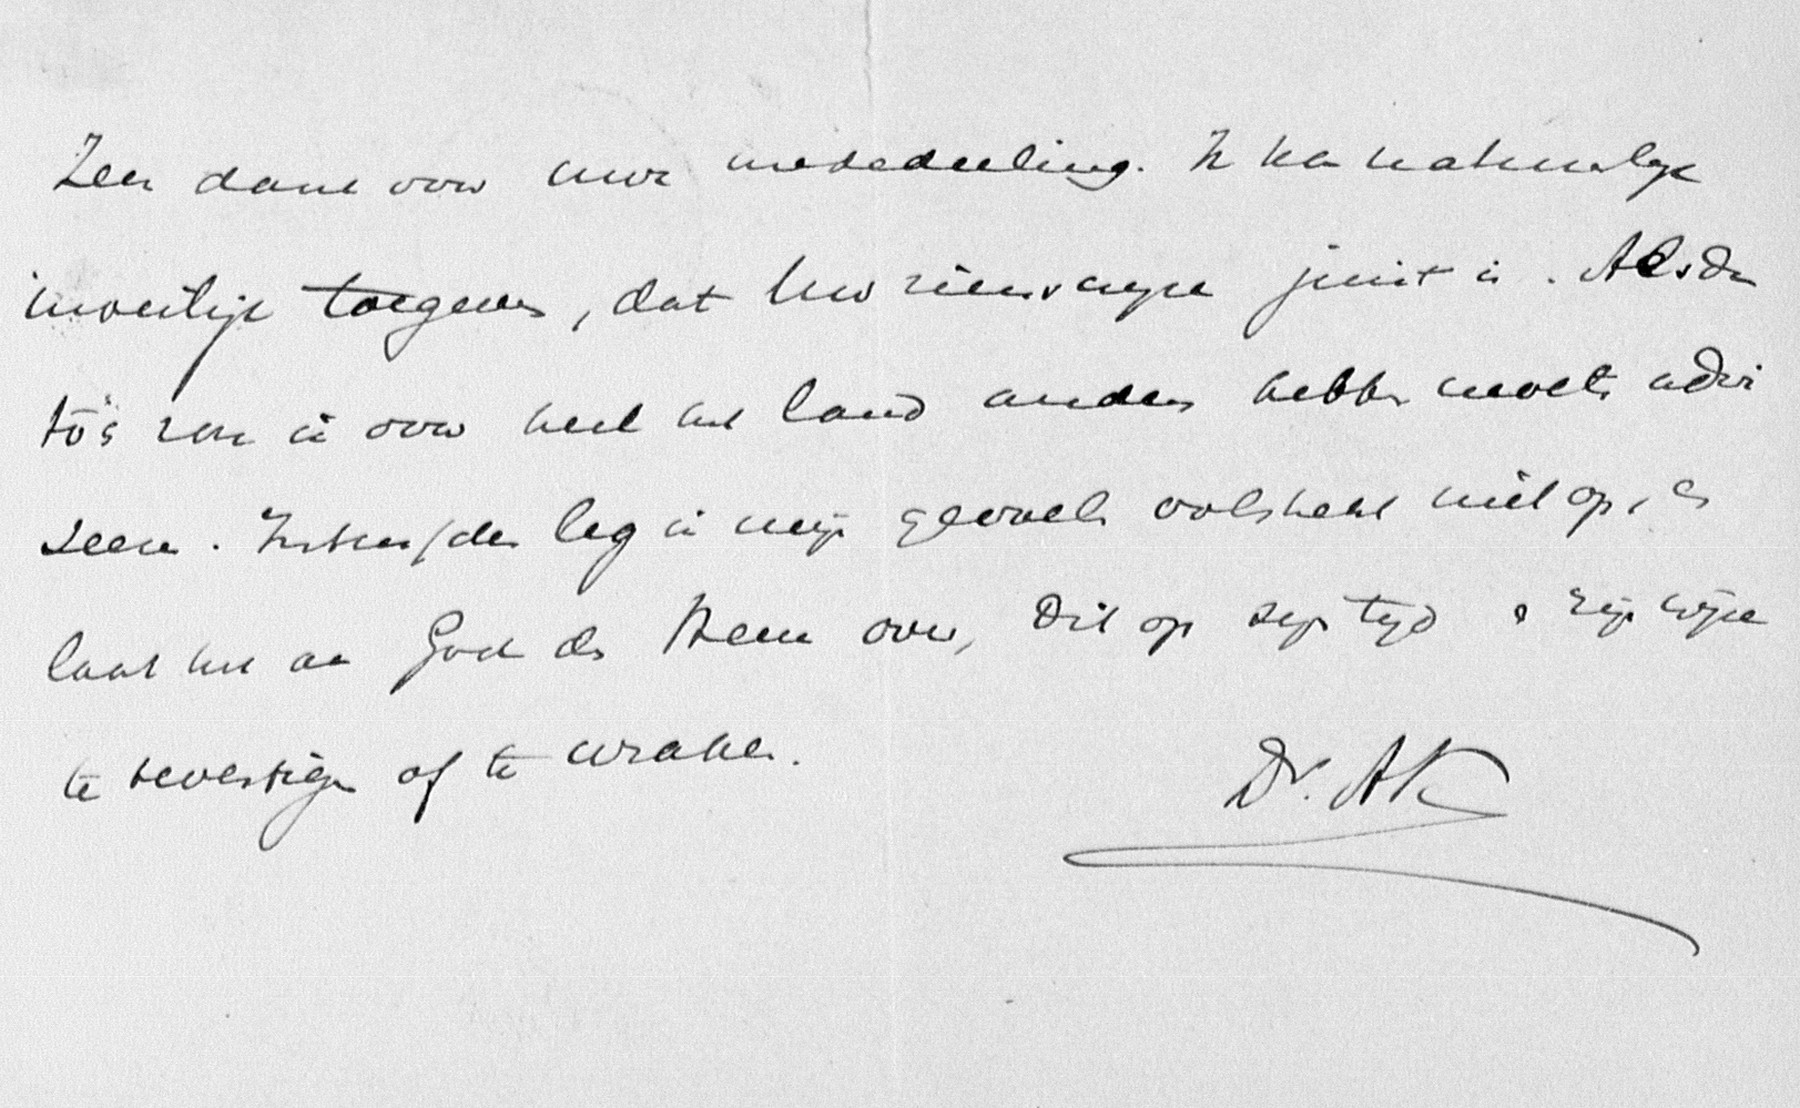 Zeer dank voor uwe mededeeling. Ik kan natuurlijk
moeilijk toegeven, dat Uw zienswijze juist is. Alsdan
toch zou ik voor heel het land anders hebben moeten advi
seeren. Intusschen leg ik mijn gevoelen volstrekt niet op, en
laat het aan God den Heere over, dit op zijn tijd en zijn wijze
te bevestigen of te wraken.
Dr. AK